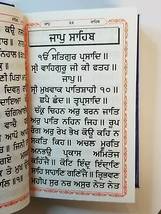 ਜਾਪੁ ੨੨ ਸਾਹਿਬ
ਜਾਪੁ ਸਾਹਿਬ
ੴ ਸਤਿਗੁਰ ਪ੍ਰਸਾਦਿ॥
ਸ੍ਰੀ ਵਾਹਿਗੁਰੂ ਜੀ ਕੀ ਫਤਹ॥
ਜਾਪੁ॥
ਸ੍ਰੀ ਮੁਖਵਾਕ ਪਾਤਿਸਾਹੀ ੧੦॥
ਛਪੈ ਛੰਦ॥ ਤ੍ਵਪ੍ਰਸਾਦਿ॥
ਚੱਕ੍ਰ ਚਿਹਨ ਅਰੁ ਬਰਨ ਜਾਤਿ
ਅਰੁ ਪਾਤਿ ਨਹਿਨ ਜਿਹ॥ ਰੂਪ
ਰੰਗ ਅਰੁ ਰੇਖ ਭੇਖ ਕੋਊ ਕਹਿ ਨ
ਸਕਤਿ ਕਿਹ॥ ਅਚਲ ਮੂਰਤਿ
ਅਨਭਉ ਪ੍ਰਕਾਸ ਅਮਿਤੋਜ
ਕਹਿੱਜੈ॥ ਕੋਟਿ ਇੰਦ੍ਰ ਇੰਦ੍ਰਾਣ
ਸਾਹੁ ਸਾਹਾਣਿ ਗਣਿੱਜੈ॥ ਤ੍ਰਿਭਵਣ
ਮਹੀਪ ਸੁਰ ਨਰ ਅਸੁਰ ਨੇਤ ਨੇਤ